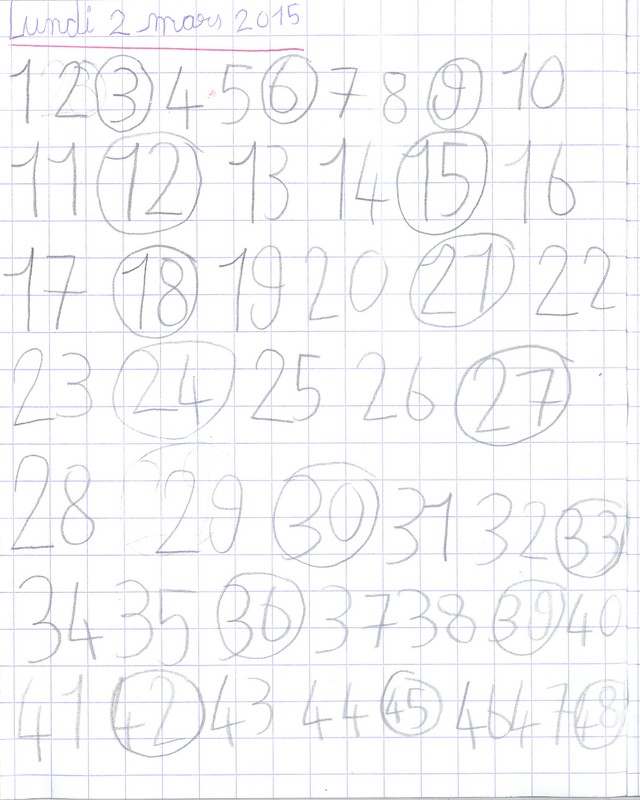 Lundi 2 mars 2015
1 2 3 4 5 6 7 8 9 10
11 12 13 14 15 16
17 18 19 20 21 22
23 24 25 26 27
28 29 30 31 32 33
34 35 36 37 38 39 40
41 42 43 44 45 46 47 48